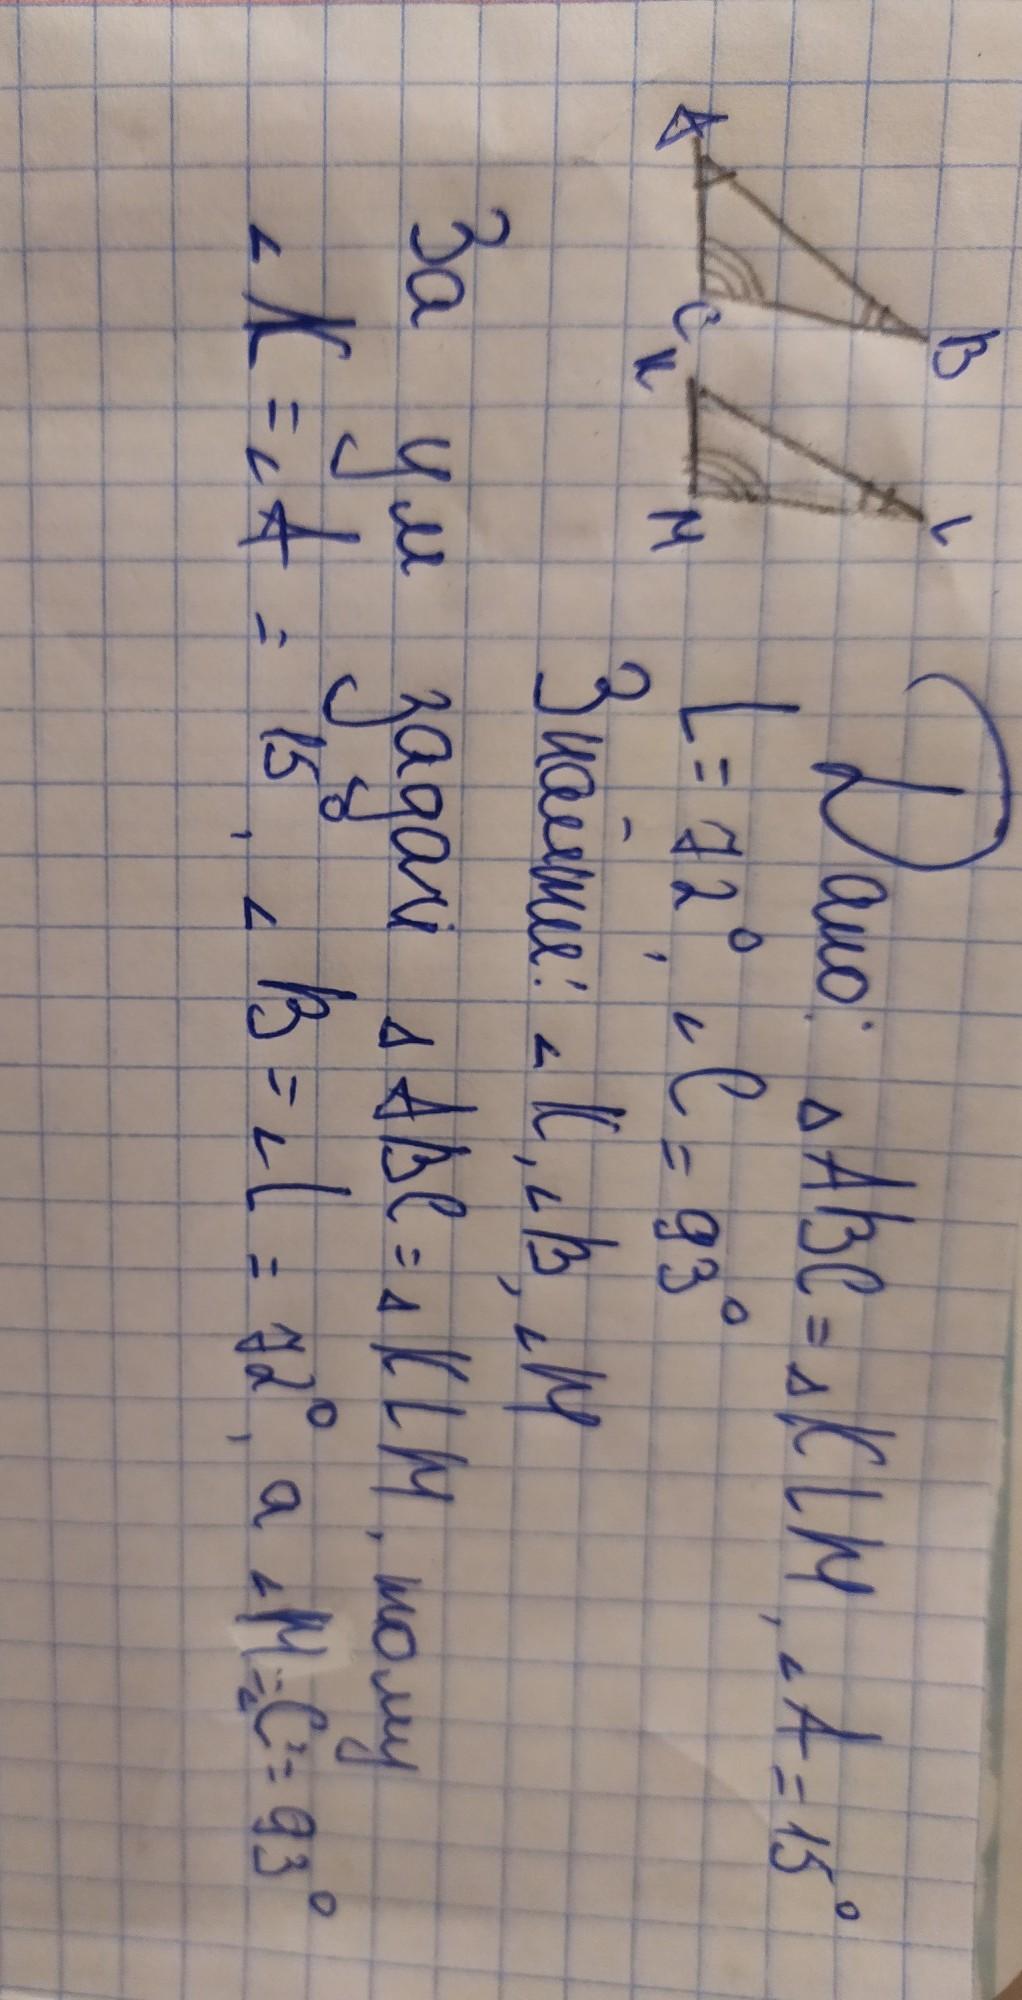 A
B
C
К
L
М
Дано: ▵ABC=▵KLM, ∠A=15°
L=72°, ∠C=93°
Знайти: ∠K, ∠B, ∠M
За ум задачі ▵ABC=▵KLM, тому
∠K=∠A=15, ∠B=∠L=72°, а ∠M=∠C=93°